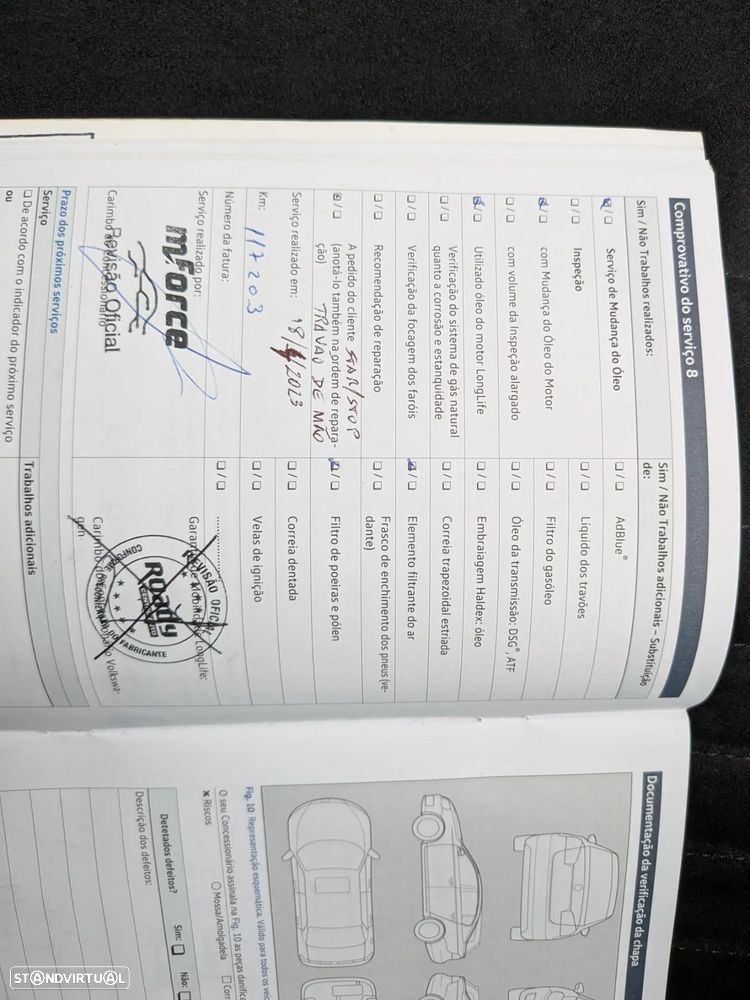 Comprovativo do serviço 8
Sim / Não Trabalhos realizados:
☑/☐ Serviço de Mudança do Óleo
☐/☐ Inspeção
☑/☐ com Mudança do Óleo do Motor
☐/☐ com volume da Inspeção alargado
☑/☐ Utilizado óleo do motor LongLife
☐/☐ Verificação do sistema de gás natural
quanto a corrosão e estanquidade
☐/☐ Verificação da focagem dos faróis
☐/☐ Recomendação de reparação
☑/☐ A pedido do cliente START/STOP
(anotá-lo também na ordem de repara-
ção) TRAVÃO DE MÃO
Serviço realizado em: 18/4/2023
Km: 117203
Número da fatura:
Serviço realizado por:
mforce
Revisão Oficial
Carimbo do Concessionário
Sim / Não Trabalhos adicionais – Substituição
de:
☐/☐ AdBlue®
☐/☐ Líquido dos travões
☐/☐ Filtro do gasóleo
☐/☐ Óleo da transmissão: DSG®, ATF
☐/☐ Embraiagem Haldex: óleo
☐/☐ Correia trapezoidal estriada
☑/☐ Elemento filtrante do ar
☐/☐ Frasco de enchimento dos pneus (ve-
dante)
☑/☐ Filtro de poeiras e pólen
☐/☐ Correia dentada
☐/☐ Velas de ignição
☐/☐
Garantia de Mobilidade LongLife:
REVISÃO OFICIAL
ROady
CONFORME
FABRICANTE
Carimbo do Concessionário Volkswa-
gen
Prazo dos próximos serviços
Serviço
Trabalhos adicionais
☐ De acordo com o indicador do próximo serviço
ou
Documentação da verificação da chapa
Fig. 10 Representação esquemática. Válido para todos os
O seu Concessionário assinala na Fig. 10 as peças
× Riscos
○ Mossa/Amolgadela
Detetados defeitos?
Sim: ☐
Não: ☐
Descrição dos defeitos:
STANDVIRTUAL